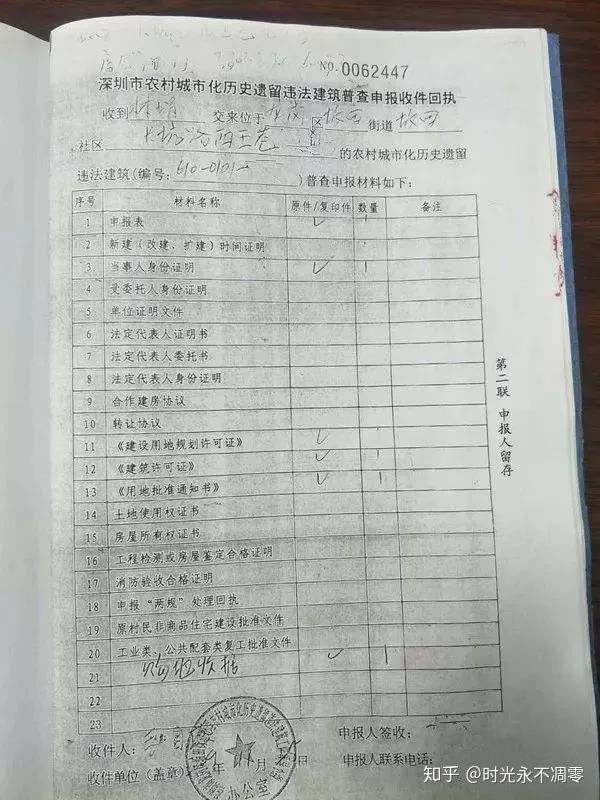 NO.0062447
深圳市农村城市化历史遗留违法建筑普查申报收件回执
收到 交来位于 区 坂田 街道 坂田
社区 的农村城市化历史遗留
违法建筑(编号:610-0101- )普查申报材料如下:
序号 材料名称 原件/复印件 数量 备注
1 申报表 ✓
2 新建(改建、扩建)时间证明
3 当事人身份证明 ✓ 1
4 受委托人身份证明
5 单位证明文件
6 法定代表人证明书
7 法定代表人委托书
8 法定代表人身份证明
9 合作建房协议
10 转让协议
11 《建设用地规划许可证》 ✓ 1
12 《建筑许可证》 ✓ 1
13 《用地批准通知书》 ✓ 1
14 土地使用权证书
15 房屋所有权证书
16 工程检测或房屋鉴定合格证明
17 消防验收合格证明
18 申报“两规”处理回执
19 原村民非商品住宅建设批准文件
20 工业类、公共配套类复工批准文件 ✓ 1
21 购地收据
22
23
收件人: 申报人签收:
收件单位(盖章) 年 月 申报人联系电话:
办公室
第二联 申报人留存
知乎 @时光永不凋零